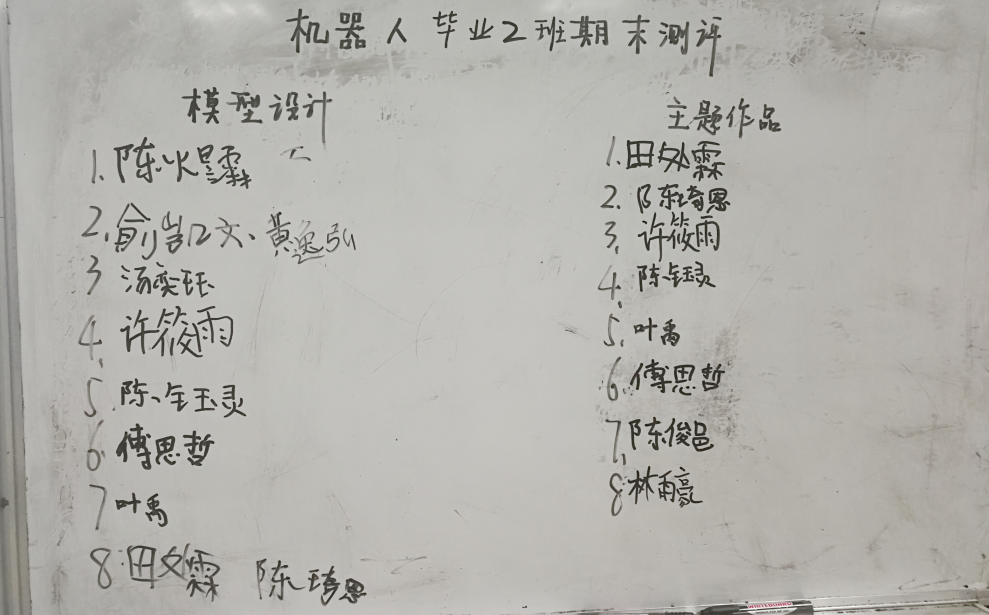 机器人毕业2班期末测评
模型设计
1.陈火星霖
2.俞凯文、黄逸弘
3 汤奕钰
4.许筱雨
5.陈钰灵
6 傅思哲
7 叶禹
8.田处霖 陈琦恩
主题作品
1.田处霖
2.陈琦恩
3.许筱雨
4.陈钰灵
5.叶禹
6.傅思哲
7.陈俊邑
8 林雨豪